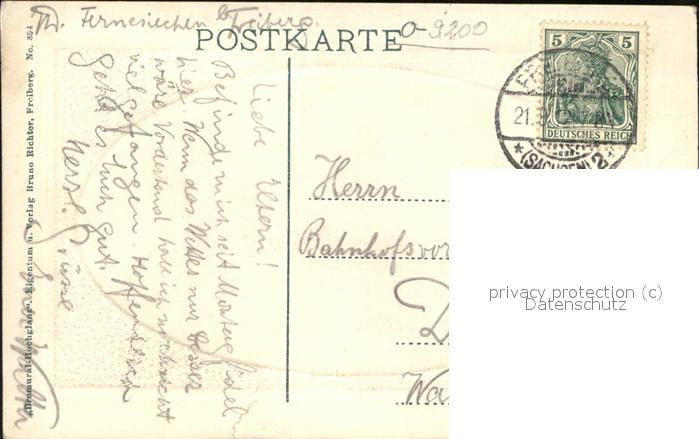 Fernesiechen b. Freiberg.
POSTKARTE
0-9200
5 5
DEUTSCHES REICH
21.3
*(SACHSEN) 2*
Liebe Eltern!
Befinde mich seit Montag fidel
hier. Wenn das Wetter nur besser
wäre. Vorderhand hab ich noch nicht
viel gefangen. Hoffentlich
geht es Euch gut.
Herzl. Grüsse
Herrn
Bahnhofsvor
D
Wa
„Bromural-Hochglanz“. Eigentum u. Verlag Bruno Richter, Freiberg. No. 894
privacy protection (c)
Datenschutz